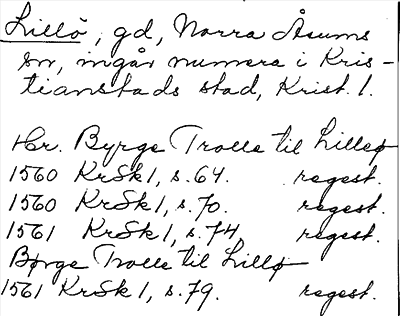 Lillö, gd, Norra Åsums
sn, ingår numera i Kris-
tianstads stad, Krist. l.
Hr. Byrge Trolle til Lilleø
1560 KrSk 1, s. 64. regest.
1560 KrSk 1, s. 70. regest.
1561 KrSk 1, s. 74. regest.
Børge Trolle til Lillø
1561 KrSk 1, s. 79. regest.